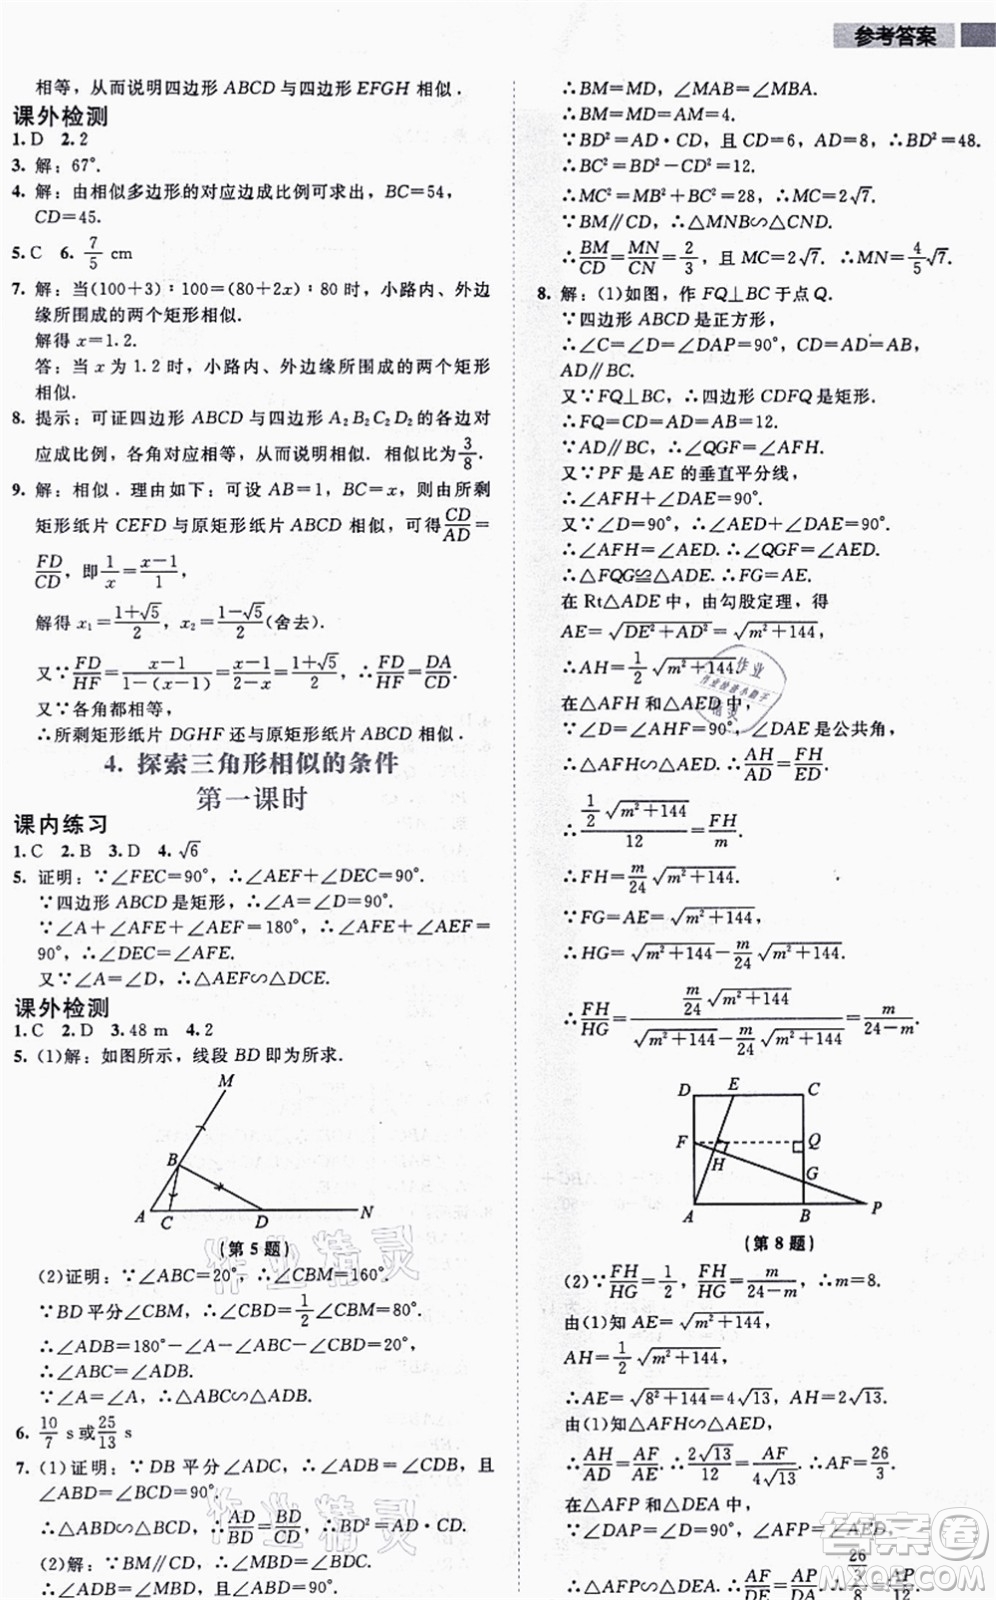 参考答案
相等，从而说明四边形 ABCD 与四边形 EFGH 相似．
课外检测
1. D  2. 2
3. 解：67°.
4. 解：由相似多边形的对应边成比例可求出，BC=54，
CD=45.
5. C  6. 7/5 cm
7. 解：当(100+3)∶100=(80+2x)∶80时，小路内、外边
缘所围成的两个矩形相似.
解得 x=1.2.
答：当 x 为 1.2 时，小路内、外边缘所围成的两个矩形
相似.
8. 提示：可证四边形 ABCD 与四边形 A₂B₂C₂D₂ 的各边对
应成比例，各角对应相等，从而说明相似. 相似比为 3/8.
9. 解：相似．理由如下：可设 AB=1，BC=x，则由所剩
矩形纸片 CEFD 与原矩形纸片 ABCD 相似，可得 CD/AD=
FD/CD，即 1/x=(x−1)/1，
解得 x₁=(1+√5)/2，x₂=(1−√5)/2(舍去).
又∵FD/HF=(x−1)/(1−(x−1))=(x−1)/(2−x)=(1+√5)/2，∴FD/HF=DA/CD.
又∵各角都相等，
∴所剩矩形纸片 DGHF 还与原矩形纸片 ABCD 相似．
4. 探索三角形相似的条件
第一课时
课内练习
1. C  2. B  3. D  4. √6
5. 证明：∵∠FEC=90°，∴∠AEF+∠DEC=90°.
∵四边形 ABCD 是矩形，∴∠A=∠D=90°.
∵∠A+∠AFE+∠AEF=180°，∴∠AFE+∠AEF=
90°，∴∠DEC=∠AFE.
又∵∠A=∠D，∴△AEF∽△DCE.
课外检测
1. C  2. D  3. 48 m  4. 2
5. (1)解：如图所示，线段 BD 即为所求.
M
B
A C D N
(第 5 题)
(2)证明：∵∠ABC=20°，∴∠CBM=160°.
∵BD 平分∠CBM，∴∠CBD=1/2∠CBM=80°.
∴∠ADB=180°−∠A−∠ABC−∠CBD=20°.
∴∠ABC=∠ADB.
∵∠A=∠A，∴△ABC∽△ADB.
6. 10/7 s 或 25/13 s
7. (1)证明：∵DB 平分∠ADC，∴∠ADB=∠CDB，且
∠ABD=∠BCD=90°.
∴△ABD∽△BCD.∴AD/BD=BD/CD，∴BD²=AD·CD.
(2)解：∵BM∥CD，∴∠MBD=∠BDC.
∴∠ADB=∠MBD，且∠ABD=90°.
∴BM=MD，∠MAB=∠MBA.
∴BM=MD=AM=4.
∵BD²=AD·CD，且 CD=6，AD=8，∴BD²=48.
∴BC²=BD²−CD²=12.
∴MC²=MB²+BC²=28，∴MC=2√7.
∵BM∥CD，∴△MNB∽△CND.
∴BM/CD=MN/CN=2/3，且 MC=2√7，∴MN=4/5√7.
8. 解：(1)如图，作 FQ⊥BC 于点 Q.
∵四边形 ABCD 是正方形，
∴∠C=∠D=∠DAP=90°，CD=AD=12，
AD∥BC.
又∵FQ⊥BC，∴四边形 CDFQ 是矩形.
∴FQ=CD=AD=12.
∵AD∥BC，∴∠QGF=∠AFH.
又∵PF 是 AE 的垂直平分线，
∴∠AFH+∠DAE=90°.
又∵∠D=90°，∴∠AED+∠DAE=90°.
∴∠AFH=∠AED.∴∠QGF=∠AED.
∴△FQG≌△ADE.∴FG=AE.
在 Rt△ADE 中，由勾股定理，得
AE=√(DE²+AD²)=√(m²+144)，
∴AH=1/2√(m²+144).
在△AFH 和△AED 中，
∵∠D=∠AHF=90°，∠DAE 是公共角，
∴△AFH∽△AED.∴AH/AD=FH/ED.
∴(1/2√(m²+144))/12=FH/m.
∴FH=m/24√(m²+144).
∵FG=AE=√(m²+144)，
∴HG=√(m²+144)−m/24√(m²+144).
∴FH/HG=(m/24√(m²+144))/(√(m²+144)−m/24√(m²+144))=m/(24−m).
D E C
F Q
H
G
A B P
(第 8 题)
(2)∵FH/HG=1/2，FH/HG=m/(24−m)，∴m=8.
由(1)知 AE=√(m²+144)，
AH=1/2√(m²+144)，
∴AE=√(8²+144)=4√13，AH=2√13.
由(1)知△AFH∽△AED，
∴AH/AD=AF/AE.∴2√13/12=AF/4√13，∴AF=26/3.
在△AFP 和△DEA 中，
∵∠DAP=∠D=90°，∠AFP=∠AED，
∴△AFP∽△DEA.∴AF/DE=AP/DA.∴(26/3)/8=AP/12.
作业精灵
作业精灵
作业
作业检查小助手
精灵
答案圈